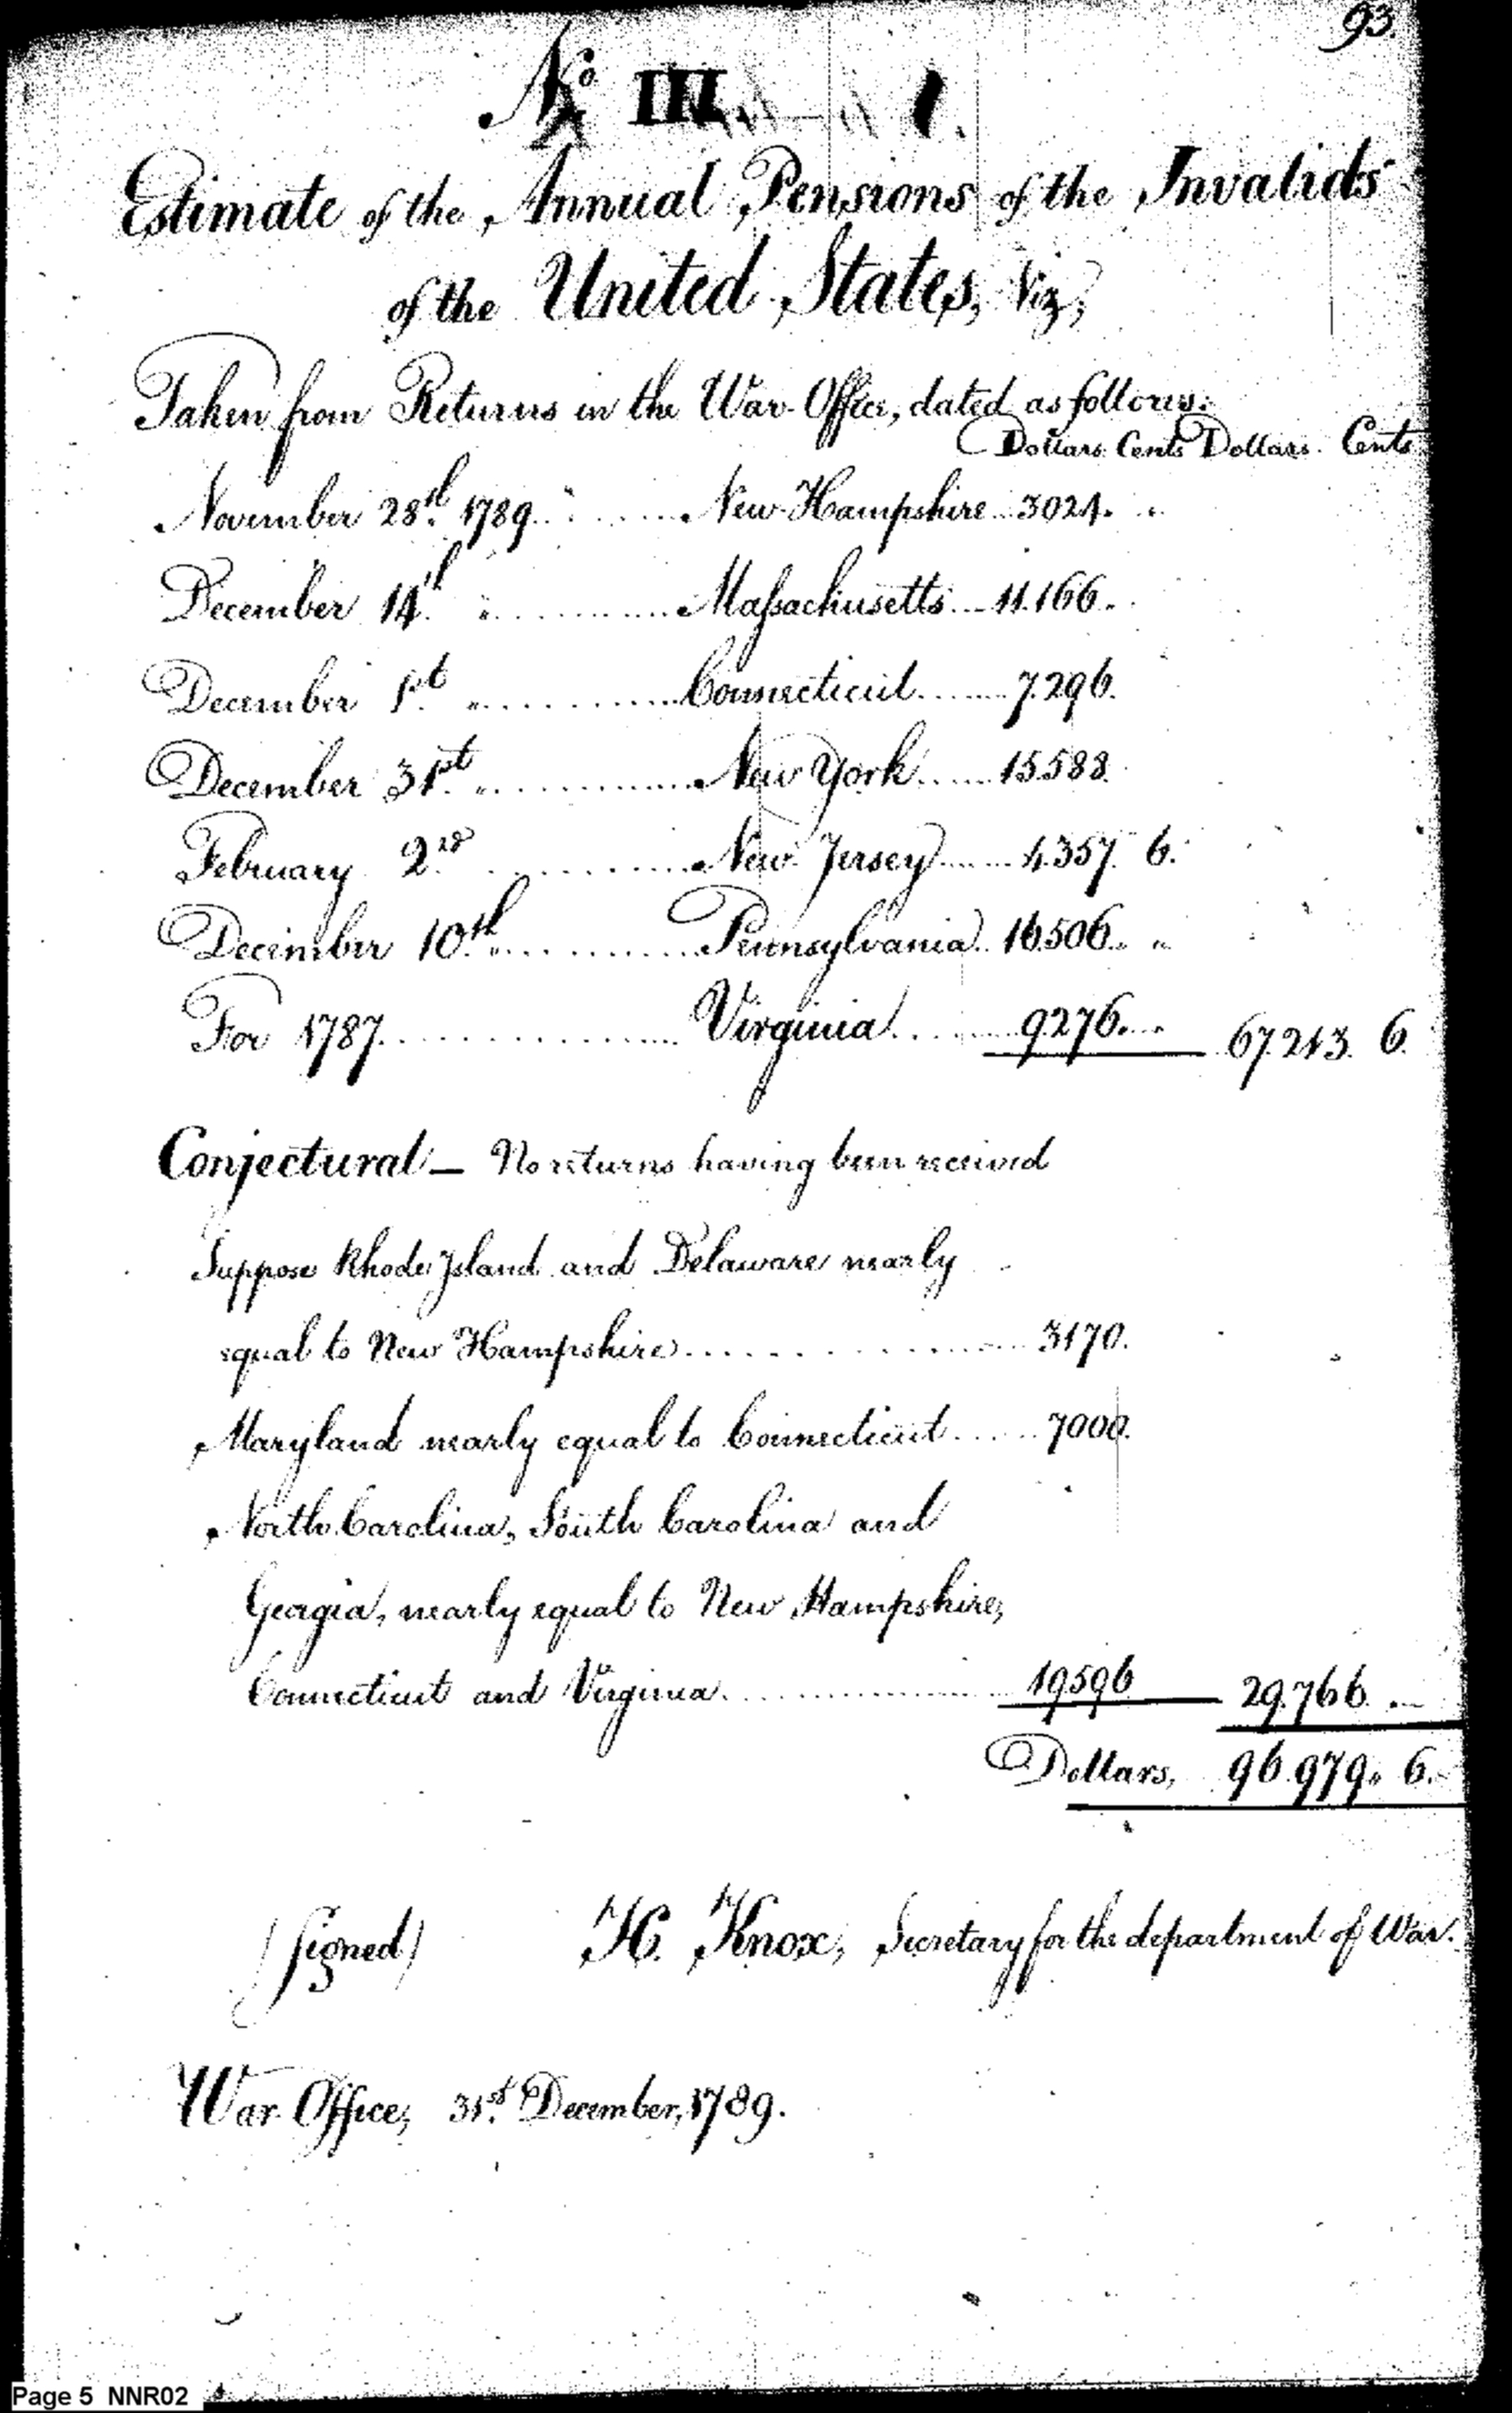 93.
No. III.
Estimate of the Annual Pensions of the Invalids
of the United States, Viz,
Taken from Returns in the War-Office, dated as follows:
Dollars Cents Dollars. Cents
November 28th. 1789. " ........ New-Hampshire ... 3024. "
December 14th. " ............ Massachusetts ... 11.166.
December 1st. " ............ Connecticut ....... 7.296.
December 31st. " ............ New York ...... 15.588.
February 2nd. ............ New Jersey ...... 4.357. 6.
December 10th. " ............ Pennsylvania .. 16.506. "
For 1787. ................ Virginia ....... 9276. . 67.213. 6.
Conjectural — No returns having been received
Suppose Rhode Island and Delaware nearly
equal to New Hampshire ................ 3170.
Maryland nearly equal to Connecticut ...... 7000.
North Carolina, South Carolina and
Georgia, nearly equal to New Hampshire,
Connecticut and Virginia. ................ 19596 29.766. .
Dollars, 96.979. 6.
(signed) H. Knox, Secretary for the department of War.
War-Office, 31st. December, 1789.
Page 5 NNR02